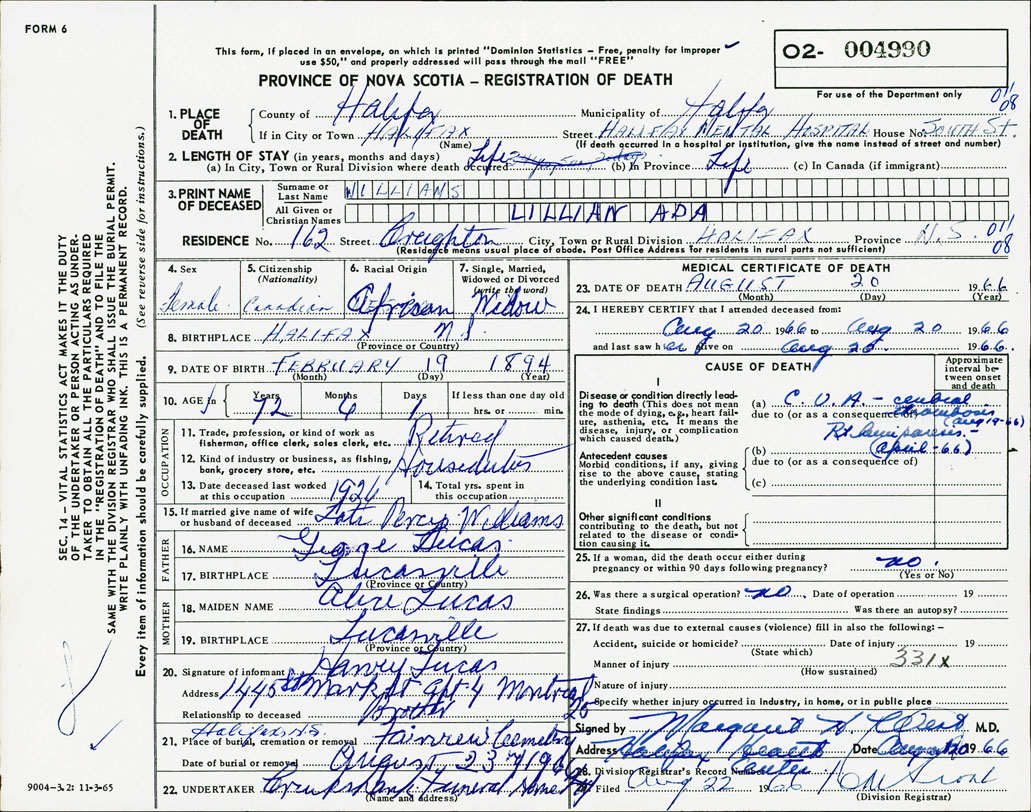 FORM 6
This form, if placed in an envelope, on which is printed "Dominion Statistics – Free, penalty for improper
use $50," and properly addressed will pass through the mail "FREE"
O2- 004990
PROVINCE OF NOVA SCOTIA – REGISTRATION OF DEATH
For use of the Department only
011
08
1. PLACE OF DEATH
County of Halifax Municipality of Halifax
If in City or Town HALIFAX Street HALIFAX MENTAL HOSPITAL House No. SOUTH St.
(Name) (If death occurred in a hospital or institution, give the name instead of street and number)
2. LENGTH OF STAY (in years, months and days)
(a) In City, Town or Rural Division where death occurred Life (b) In Province Life (c) In Canada (if immigrant)
3. PRINT NAME OF DECEASED
Surname or Last Name WILLIAMS
All Given or Christian Names LILLIAN ADA
RESIDENCE No. 162 Street Creighton City, Town or Rural Division HALIFAX Province N.S. 011
08
(Residence means usual place of abode. Post Office Address for residents in rural parts not sufficient)
4. Sex Female
5. Citizenship (Nationality) Canadian
6. Racial Origin African
7. Single, Married, Widowed or Divorced (write the word) Widow
8. BIRTHPLACE HALIFAX N.S.
(Province or Country)
9. DATE OF BIRTH FEBRUARY 19 1894
(Month) (Day) (Year)
10. AGE in Years 72 Months 6 Days 1 If less than one day old
hrs. or min.
OCCUPATION
11. Trade, profession, or kind of work as
fisherman, office clerk, sales clerk, etc. Retired
12. Kind of industry or business, as fishing,
bank, grocery store, etc. Houseduties
13. Date deceased last worked
at this occupation 1926
14. Total yrs. spent in
this occupation
15. If married give name of wife
or husband of deceased Late Percy Williams
FATHER
16. NAME George Lucas
17. BIRTHPLACE Lucasville
(Province or Country)
MOTHER
18. MAIDEN NAME Alice Lucas
19. BIRTHPLACE Lucasville
(Province or Country)
20. Signature of informant Harvey Lucas
Address 1445 St Mark St Apt 4 Montreal
25
Relationship to deceased Brother
Halifax N.S.
21. Place of burial, cremation or removal Fairview Cemetery
Date of burial or removal August 23rd 1966
22. UNDERTAKER Cruikshank Funeral Home
(Name and address)
MEDICAL CERTIFICATE OF DEATH
23. DATE OF DEATH AUGUST 20 1966
(Month) (Day) (Year)
24. I HEREBY CERTIFY that I attended deceased from:
Aug 20 1966 to Aug 20 1966
and last saw her alive on Aug 20 1966
CAUSE OF DEATH
Approximate interval between onset and death
I
Disease or condition directly lead-
ing to death (This does not mean
the mode of dying, e.g., heart fail-
ure, asthenia, etc. It means the
disease, injury, or complication
which caused death.)
(a) C.V.A – cerebral
due to (or as a consequence of) thrombosis
(aug 19-66)
Rt hemiparesis –
(b) (april-66)
due to (or as a consequence of)
(c)
Antecedent causes
Morbid conditions, if any, giving
rise to the above cause, stating
the underlying condition last.
II
Other significant conditions
contributing to the death, but not
related to the disease or condi-
tion causing it.
25. If a woman, did the death occur either during
pregnancy or within 90 days following pregnancy? no.
(Yes or No)
26. Was there a surgical operation? no. Date of operation 19
State findings Was there an autopsy?
27. If death was due to external causes (violence) fill in also the following: –
Accident, suicide or homicide? Date of injury 19
(State which)
Manner of injury 331x
(How sustained)
Nature of injury
Specify whether injury occurred in industry, in home, or in public place
Signed by Margaret M.D.
Address Halifax Health Centre Date Aug 20 1966
28. Division Registrar's Record Number
29. Filed Aug 22 1966
(Division Registrar)
SEC. 14 – VITAL STATISTICS ACT MAKES IT THE DUTY
OF THE UNDERTAKER OR PERSON ACTING AS UNDER-
TAKER TO OBTAIN ALL THE PARTICULARS REQUIRED
IN THE "REGISTRATION OF DEATH" AND TO FILE THE
SAME WITH THE DIVISION REGISTRAR WHO SHALL ISSUE THE BURIAL PERMIT.
WRITE PLAINLY WITH UNFADING INK. THIS IS A PERMANENT RECORD.
Every item of information should be carefully supplied. (See reverse side for instructions.)
9004-3.2: 11-3-65